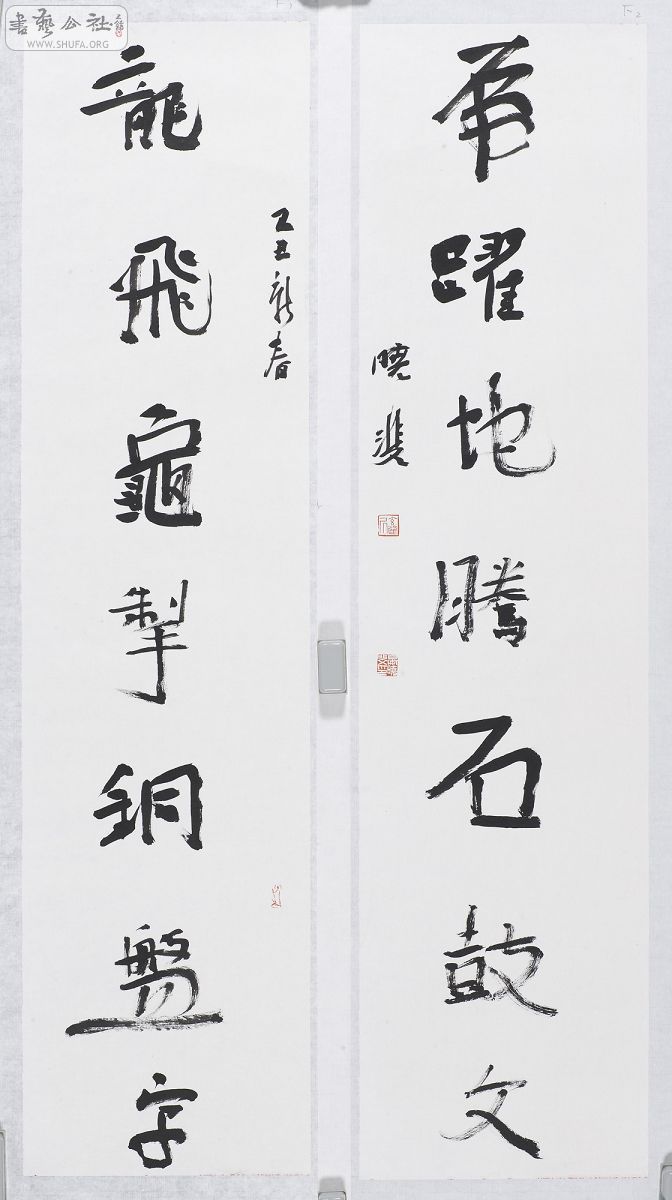 虎躍地騰石鼓文
曉
己丑新春
龍飛龜掣銅盤字
書藝公社
WWW.SHUFA.COM